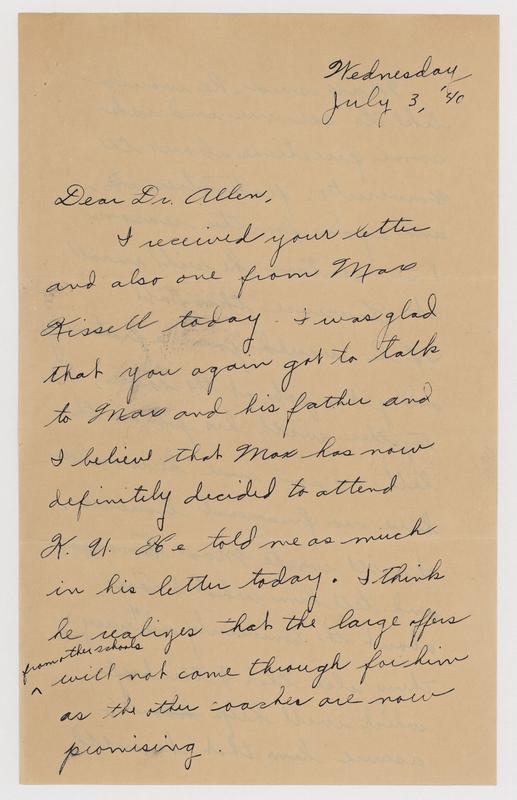 Wednesday
July 3, '40
Dear Dr. Allen,
I received your letter
and also one from Max
Kissell today. I was glad
that you again got to talk
to Max and his father and
I believe that Max has now
definitely decided to attend
K. U. He told me as much
in his letter today. I think
he realizes that the large offers
from other schools
^ will not come through for him
as the other coaches are now
promising.